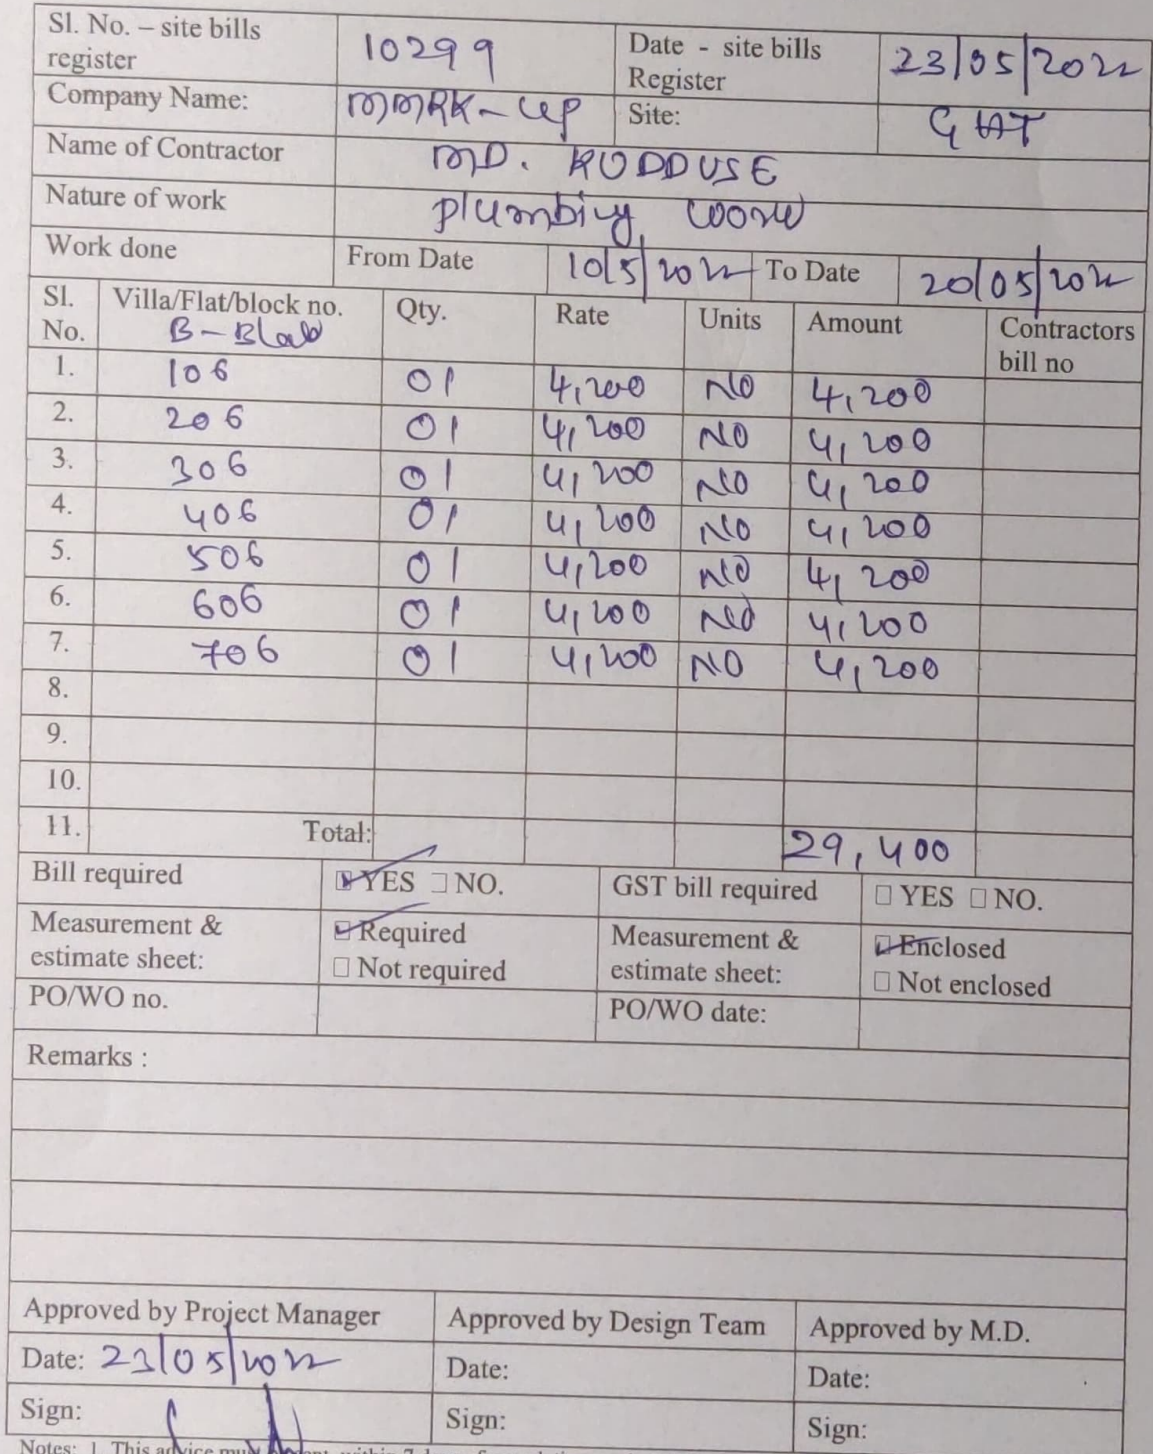 Sl. No. – site bills register 10299 Date - site bills Register 23/05/2022
Company Name: MMRK-UP Site: GHT
Name of Contractor MD. KUDDUSE
Nature of work Plumbing work
Work done From Date 10/5/2022 To Date 20/05/2022
Sl. No. Villa/Flat/block no. B-Block Qty. Rate Units Amount Contractors bill no
1. 106 01 4,200 NO 4,200
2. 206 01 4,200 NO 4,200
3. 306 01 4,200 NO 4,200
4. 406 01 4,200 NO 4,200
5. 506 01 4,200 NO 4,200
6. 606 01 4,200 NO 4,200
7. 706 01 4,200 NO 4,200
8.
9.
10.
11. Total: 29,400
Bill required ☑ YES □ NO. GST bill required □ YES □ NO.
Measurement & estimate sheet: ☑ Required □ Not required Measurement & estimate sheet: ☑ Enclosed □ Not enclosed
PO/WO no. PO/WO date:
Remarks :
Approved by Project Manager Approved by Design Team Approved by M.D.
Date: 23/05/2022 Date: Date:
Sign: Sign: Sign:
Notes: 1. This advice must